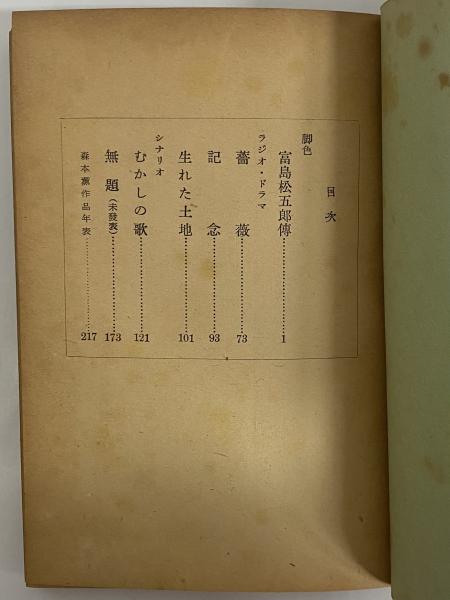 目次
脚色
富島松五郎傳……………1
ラジオ・ドラマ
薔薇……………73
記念……………93
生れた土地……………101
シナリオ
むかしの歌……………121
無題(未發表)……………173
森本薫作品年表……………217